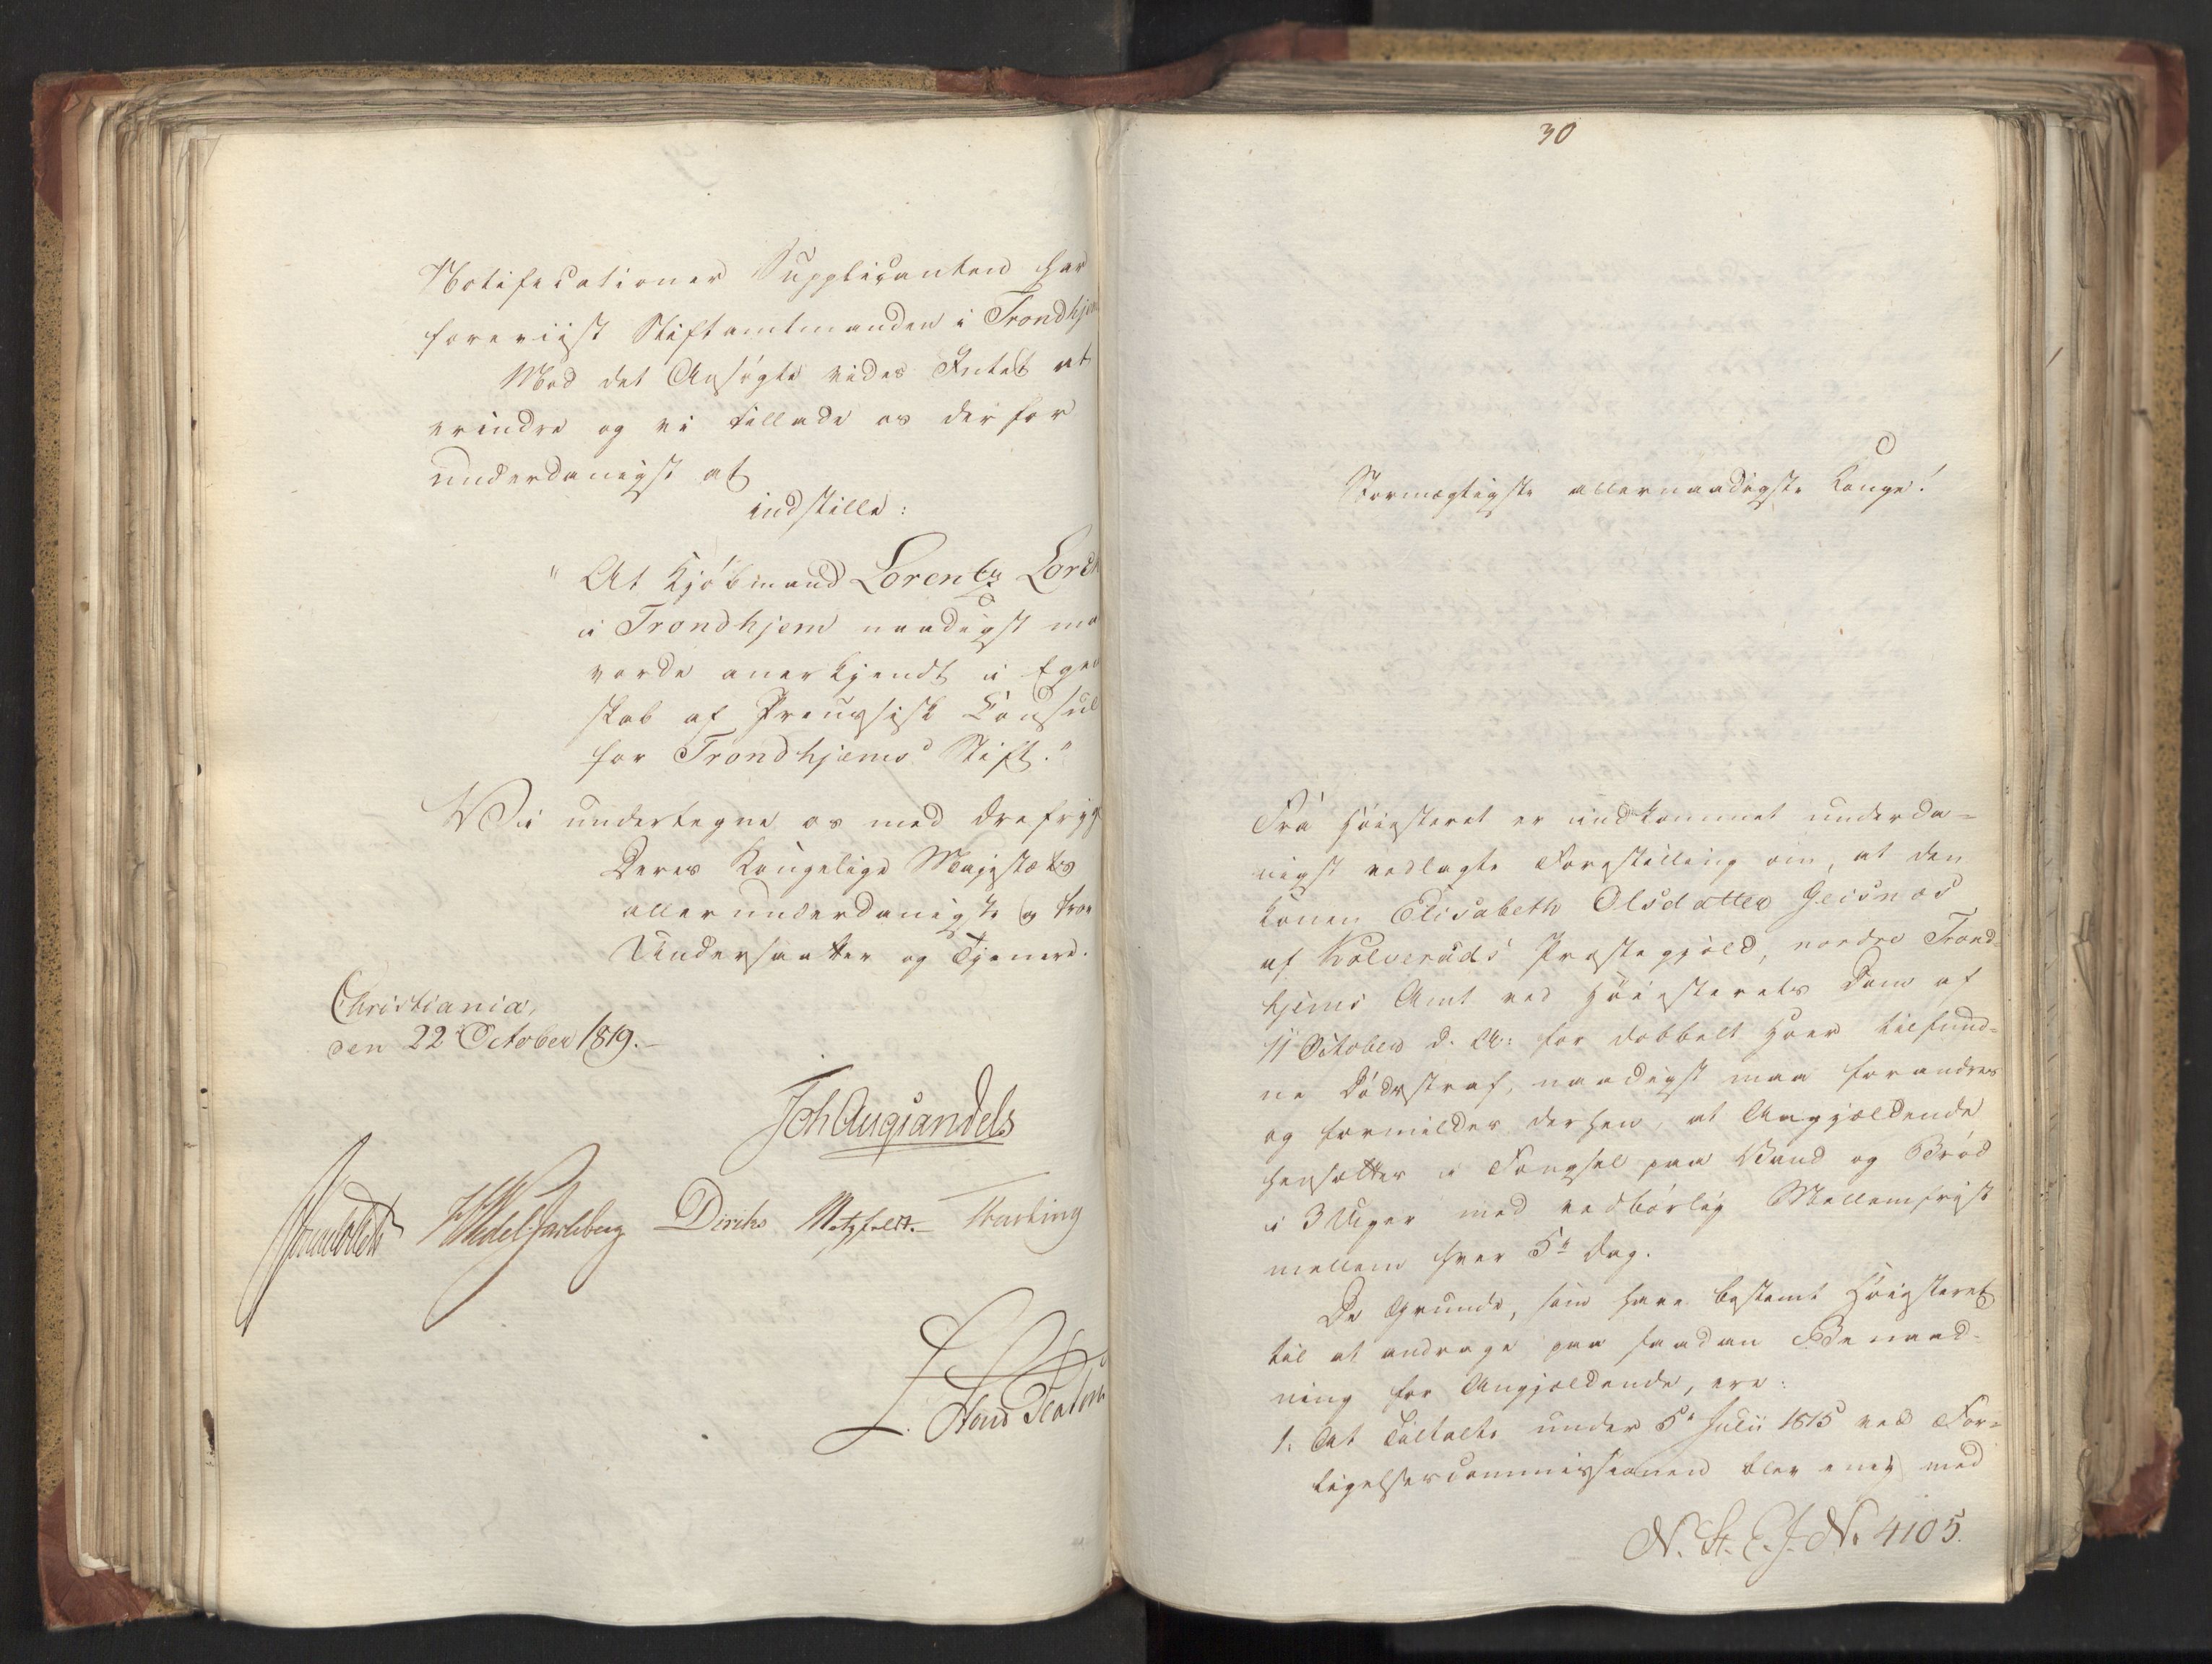 Notificationer Supplicanten har
foreviist Stiftamtmanden i Trondhjem
Mod det Ansøgte vides Intet at
erindre og vi tillade os derfor
underdanigst at
indstille:
"At Kjøbmand Lorentz Lorck
i Trondhjem naadigst maa
vorde anerkjendt i Egen
skab af Preussisk Consul
for Trondhjems Stift."
Vi undertegne os med dyb Frygt
Deres Kongelige Majestæts
allerunderdanigste og troe
Undersaatter og Tjenere.
Christiania,
den 22 October 1819.-
Joh Aug Sandels
HWedel Jarlsberg Diriks Motzfeldt. Treschow
30
Stormægtigste allernaadigste Konge!
Fra Høiesteret er indkommet underda=
nigst vedlagte Forestilling om, at den
Konen Elisabeth Olsdatter Geisnæs
af Kolvereids Præstegjæld, nordre Trond=
hjems Amt ved Høiesterets Dom af
11 October d. A: for dobbelt Hoer tilfund=
ne Dødsstraf, naadigst maa forandres
og formildes derhen, at Angjældende
hensættes i Fængsel paa Vand og Brød
i 3 Uger med vedbørlig Mellemfrist
mellem hver 5te Dag.
De Grunde, som have bestemt Høiesteret
til at andrage paa saadan Benaad-
ning for Angjældende, ere:
1: At Tiltalte under 5te Julii 1815 ved For=
ligelsescommissionen blev enig med
N. St. E. J. No 4105.